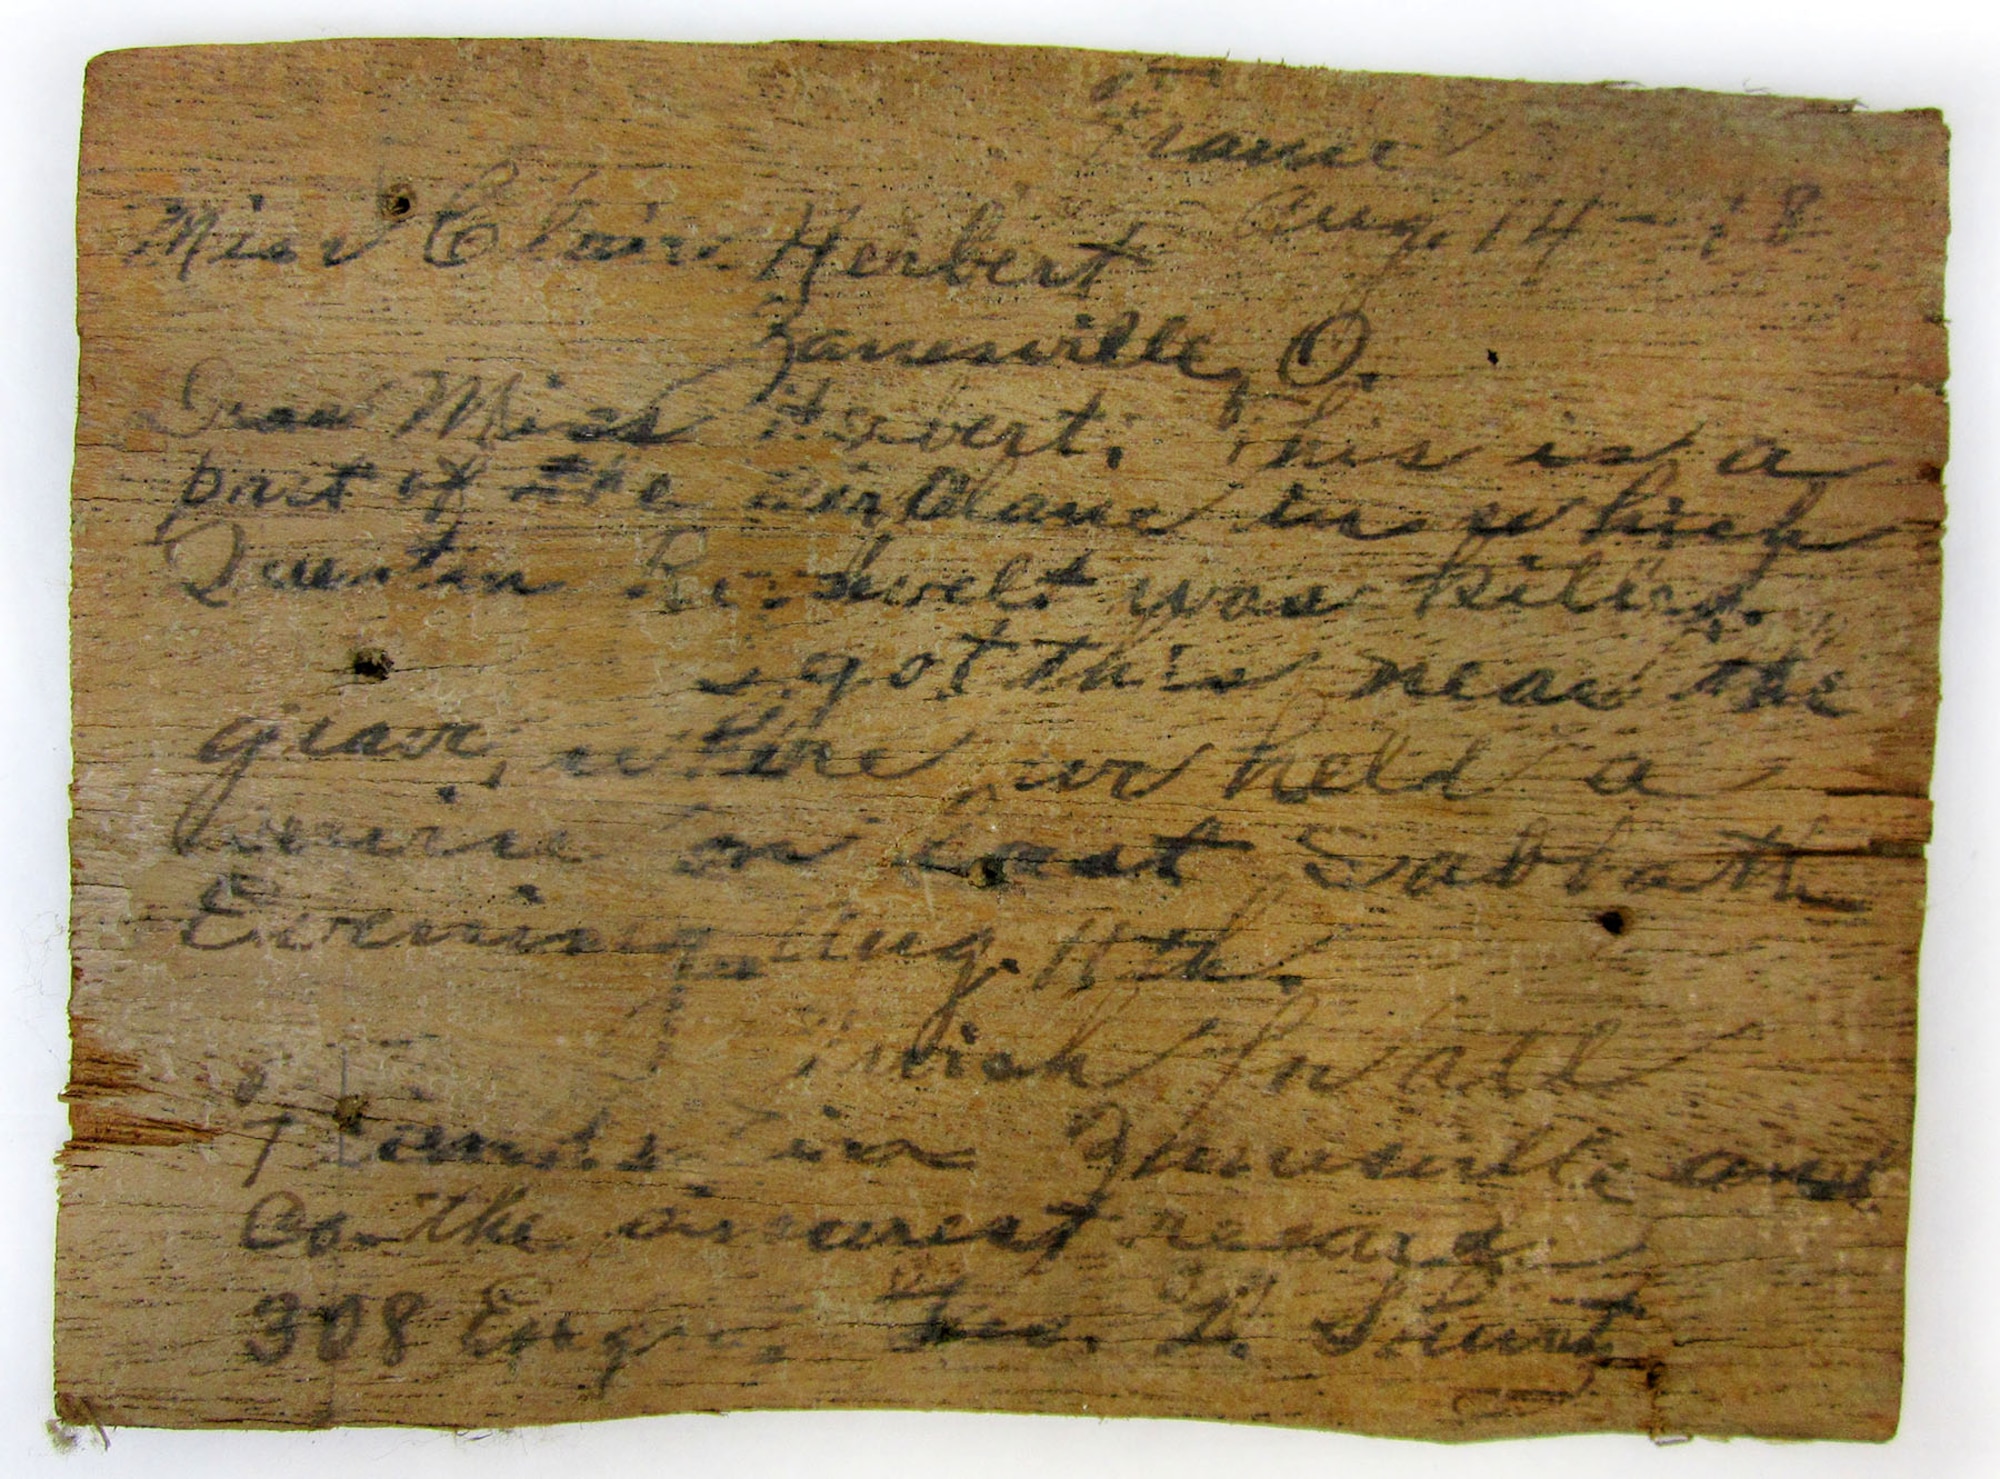 France
Aug. 14 - 18
Miss Herbert
Zanesville, O.
Dear Miss Herbert: This is a
part of the airplane in which
Quentin Roosevelt was killed.
I got this near the
grave, where we held a
service on Last Sabbath
Evening, Aug. 11th.
I wish for all
friends in Zanesville and
Co. the sincerest regards.
308 Engrs.